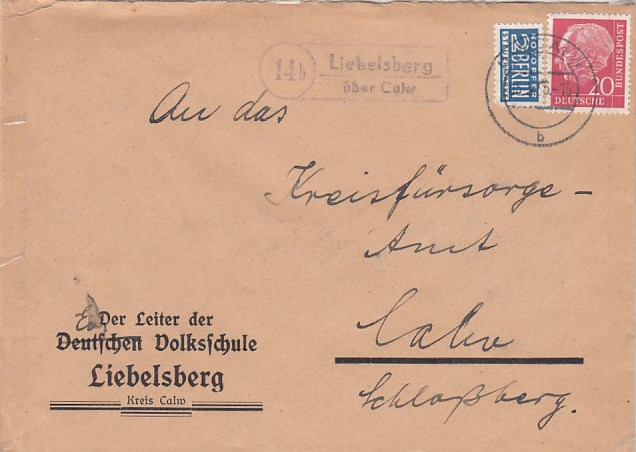 14b
Liebelsberg
über Calw
NOTOPFER
2 BERLIN
STEUERMARKE
20
DEUTSCHE
BUNDESPOST
b
An das
Kreisfürsorge-
Amt
Calw
Schloßberg.
Der Leiter der
Deutschen Volksschule
Liebelsberg
Kreis Calw